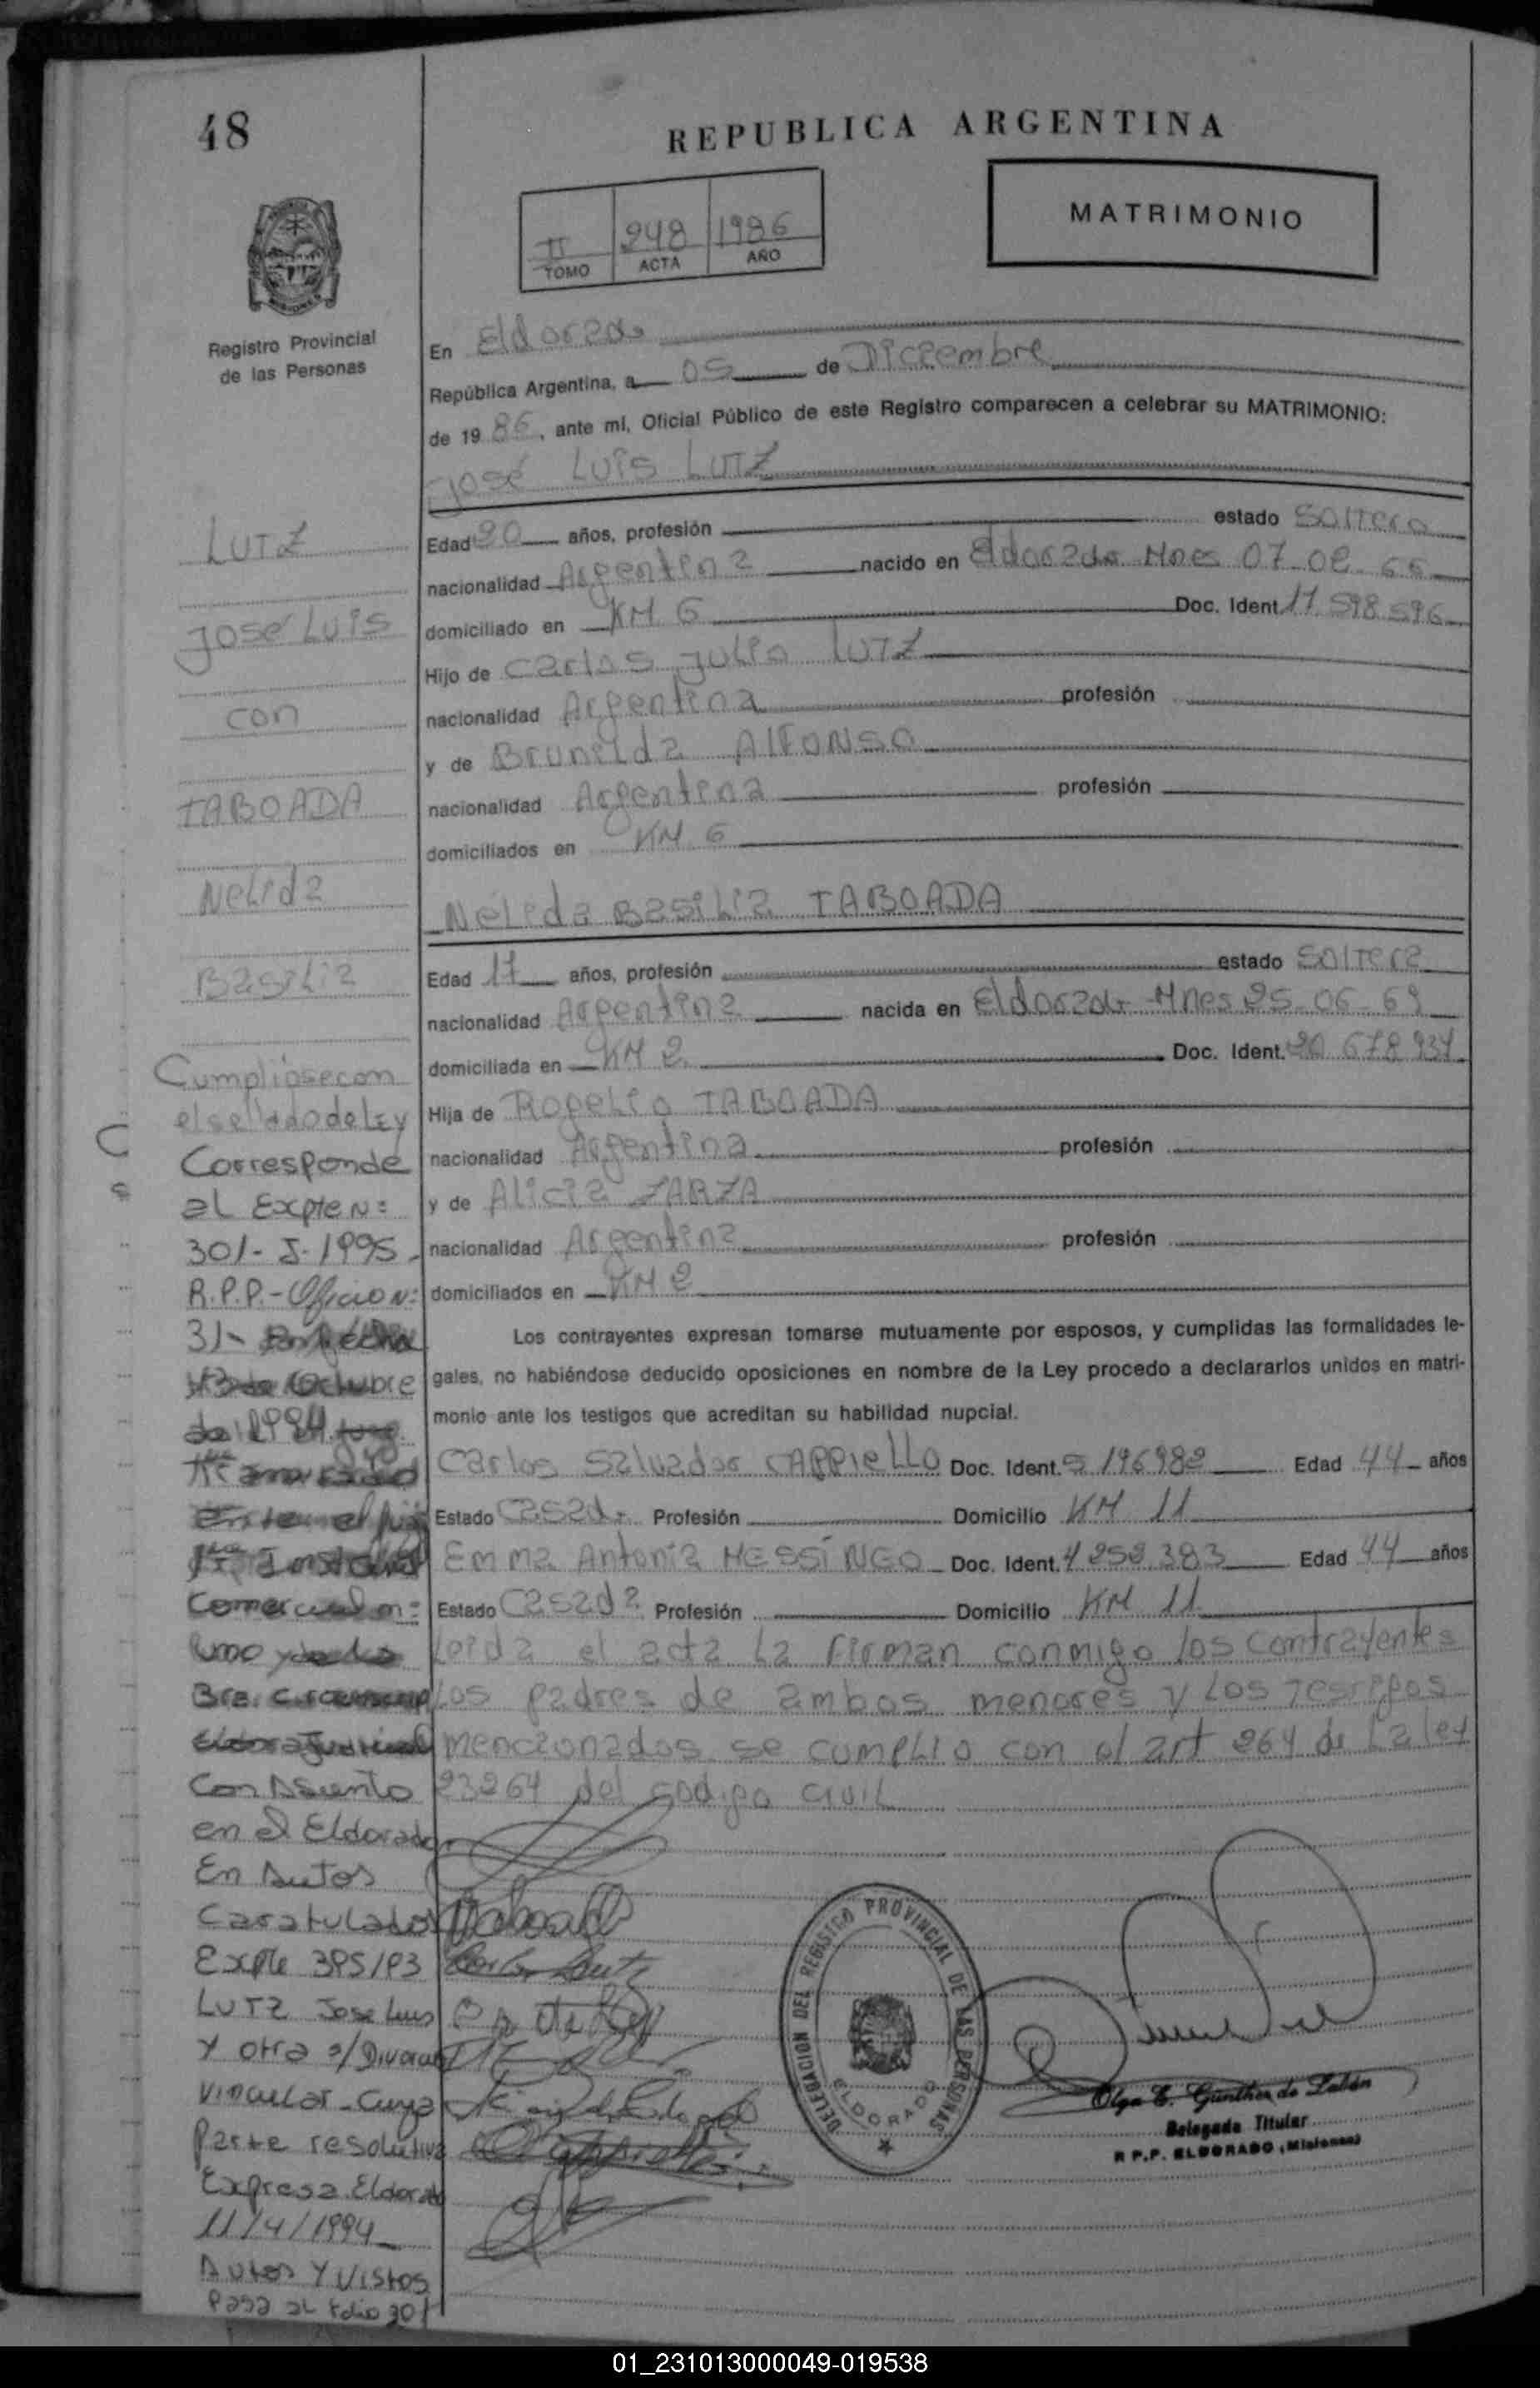 48
REPUBLICA ARGENTINA
MATRIMONIO
II 248 1986
TOMO ACTA AÑO
Registro Provincial
de las Personas
En Eldorado
República Argentina, a 05 de Diciembre
de 19 86, ante mí, Oficial Público de este Registro comparecen a celebrar su MATRIMONIO:
José Luis LUTZ
Edad 20 años, profesión estado Soltero
nacionalidad Argentina nacido en Eldorado Mnes 07-08-66
domiciliado en KM 6 Doc. Ident. 17.598.596
Hijo de Carlos Julio LUTZ
nacionalidad Argentina profesión
y de Brunilda ALFONSO
nacionalidad Argentina profesión
domiciliados en KM 6
Nelida Basilia TABOADA
Edad 17 años, profesión estado Soltera
nacionalidad Argentina nacida en Eldorado Mnes 25-06-69
domiciliada en KM 2 Doc. Ident. 20.678.934
Hija de Rogelio TABOADA
nacionalidad Argentina profesión
y de Alicia ZARZA
nacionalidad Argentina profesión
domiciliados en KM 2
Los contrayentes expresan tomarse mutuamente por esposos, y cumplidas las formalidades le-
gales, no habiéndose deducido oposiciones en nombre de la Ley procedo a declararlos unidos en matri-
monio ante los testigos que acreditan su habilidad nupcial.
Carlos Salvador CAPPIELLO Doc. Ident. 5.196982 Edad 44 años
Estado Casado Profesión Domicilio KM 11
Emma Antonia MESSINEO Doc. Ident. 4.252.383 Edad 44 años
Estado Casada Profesión Domicilio KM 11
Leida el acta la firman conmigo los contrayentes
los padres de ambos menores y los testigos
mencionados se cumplio con el art 264 de la ley
23264 del codigo civil
LUTZ
José Luis
con
TABOADA
Nelida
Basilia
Cumpliose con
el sellado de Ley
Corresponde
al Expte N:
301-J-1995.
R.P.P.-Oficio N:
31-
Octubre
de 1994
Comercial n:
uno
3ra.
Con Asiento
en el Eldorado
En Autos
Caratulados
Expte 395/93
LUTZ Jose Luis
Y otra s/Divorcio
vincular-Cuya
Parte resolutiva
Expresa. Eldorado
11/4/1994
Autos Y Vistos
Pasa al Folio 301
DELEGACION DEL REGISTRO PROVINCIAL DE LAS PERSONAS
ELDORADO
Olga E. Gunther de Labán
Delegada Titular
R.P.P. ELDORADO (Misiones)
01_231013000049-019538